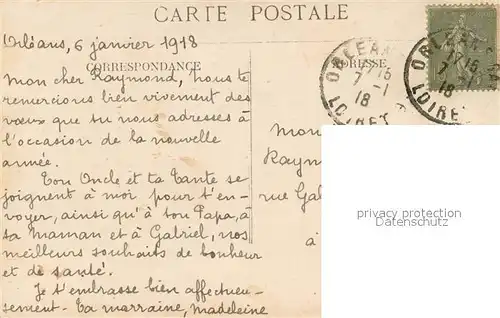 CARTE POSTALE
Orléans, 6 janvier 1918
CORRESPONDANCE
ADRESSE
Mon cher Raymond, nous te
remercions bien vivement des
vœux que tu nous adresses à
l'occasion de la nouvelle
année.
Ton Oncle et ta Tante se
joignent à moi pour t'en-
voyer, ainsi qu'à ton Papa, à
ta Maman et à Gabriel, nos
meilleurs souhaits de bonheur
et de santé.
Je t'embrasse bien affectueu-
sement - Ta marraine, Madeleine
ORLEANS
7 -1
18
LOIRET
ORLEANS
7
18
LOIRET
Mon
Rayn
rue Gal
à
privacy protection
watermark